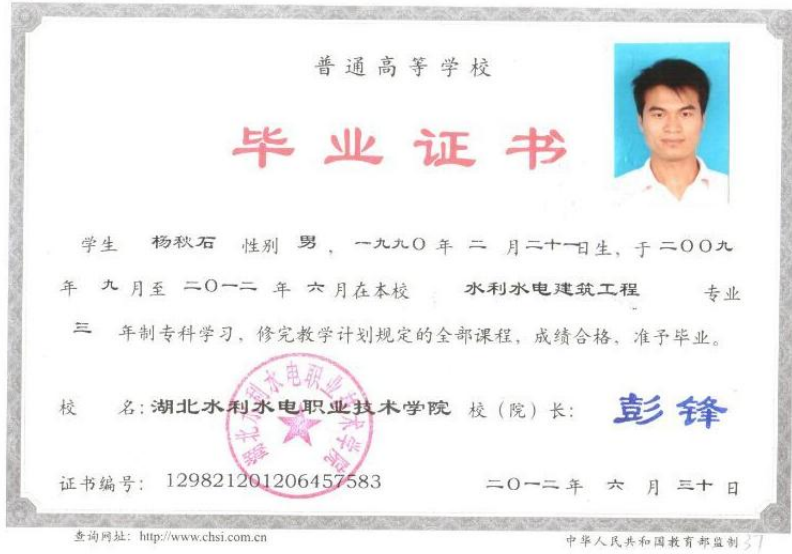 普通高等学校
毕业证书
学生 杨秋石 性别 男 ,一九九〇 年 二 月二十一日生,于二〇〇九
年 九 月至 二〇一二 年 六 月在本校 水利水电建筑工程 专业
三 年制专科学习,修完教学计划规定的全部课程,成绩合格,准予毕业。
校 名:湖北水利水电职业技术学院 校(院)长: 彭锋
湖北水利水电职业技术学院
证书编号: 129821201206457583 二〇一二年 六 月 三十 日
查询网址: http://www.chsi.com.cn 中华人民共和国教育部监制 37